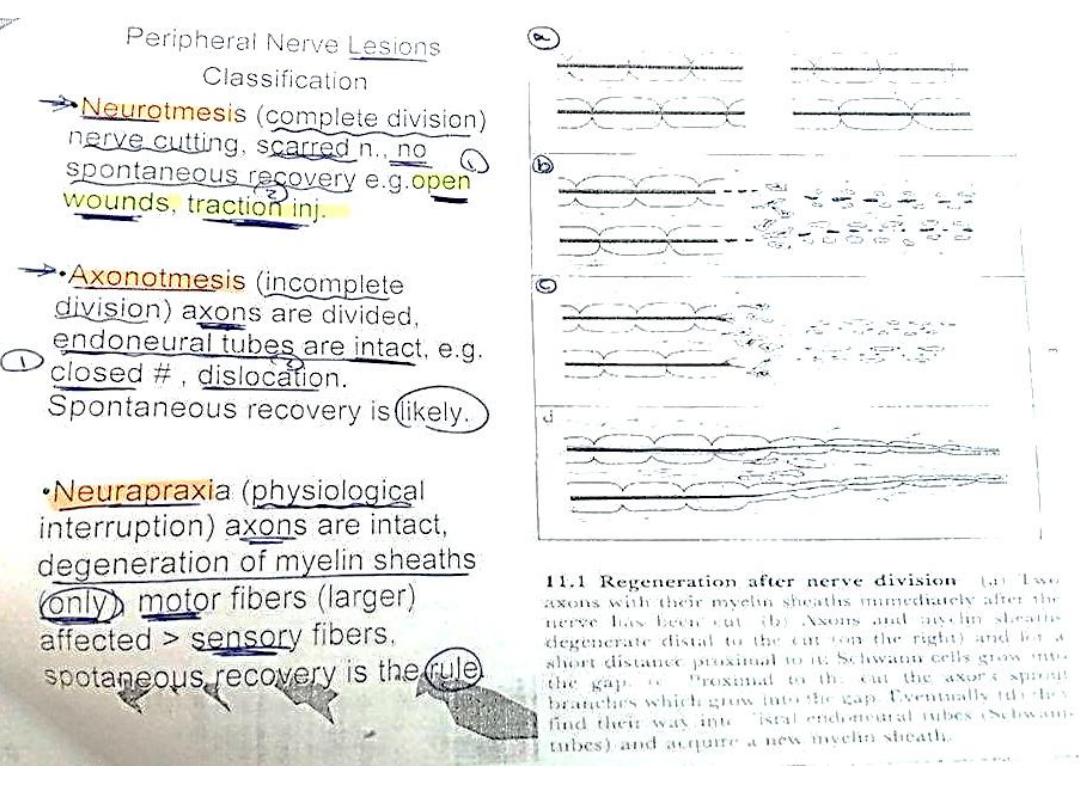 Peripheral Nerve Lesions
Classification
•Neurotmesis (complete division)
nerve cutting, scarred n., no
spontaneous recovery e.g.open
wounds, traction inj.
1
2
•Axonotmesis (incomplete
division) axons are divided,
endoneural tubes are intact, e.g.
closed # , dislocation.
Spontaneous recovery is likely.
1
2
•Neurapraxia (physiological
interruption) axons are intact,
degeneration of myelin sheaths
(only) motor fibers (larger)
affected > sensory fibers,
spotaneous recovery is the rule
a
b
c
d
11.1 Regeneration after nerve division (a) Two
axons with their myelin sheaths immediately after the
nerve has been cut (b) Axons and myelin sheaths
degenerate distal to the cut (on the right) and for a
short distance proximal to it. Schwann cells grow into
the gap. Proximal to the cut the axons sprout
branches which grow into the gap. Eventually (d) they
find their way into distal endoneural tubes (Schwann
tubes) and acquire a new myelin sheath.